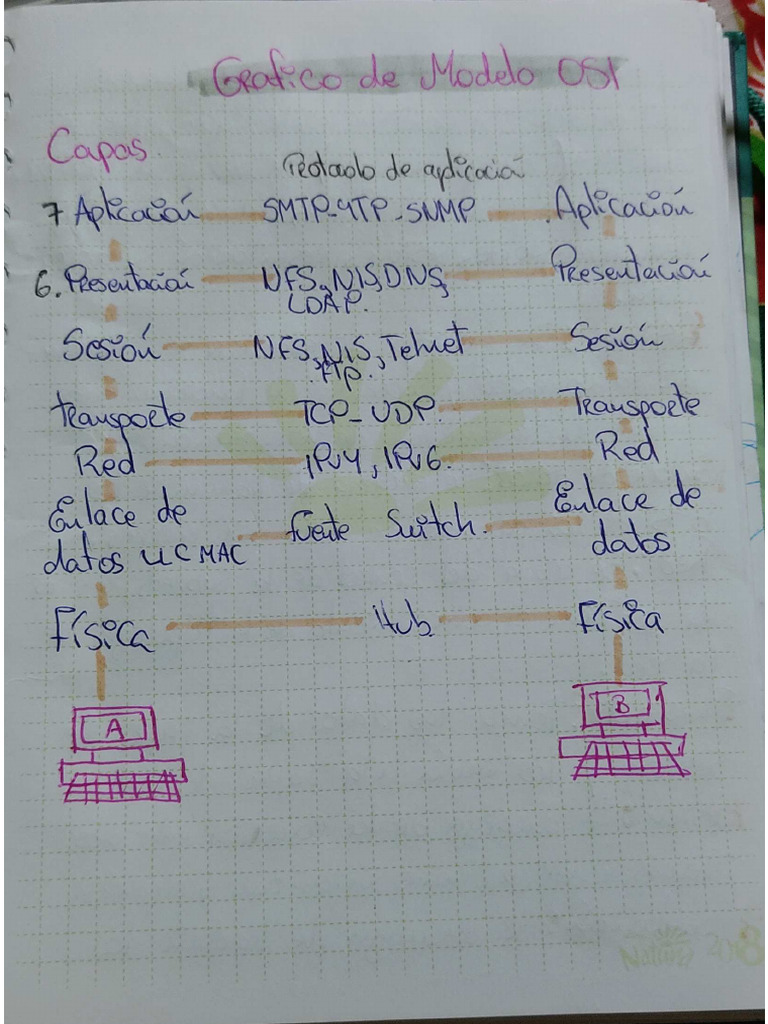 Grafico de Modelo OSI
Capas.
Protocolo de aplicación
7 Aplicación SMTP-HTP-SNMP Aplicación
6. Presentación NFS, NIS, DNS, Presentación
LDAP.
Sesión NFS, NIS, Telnet Sesión
FTP.
transporte TCP-UDP. Transporte
Red IPv4, IPv6. Red
Enlace de fuente Switch. Enlace de
datos LLC MAC datos
Física Hub Física
A B
Natura 2018